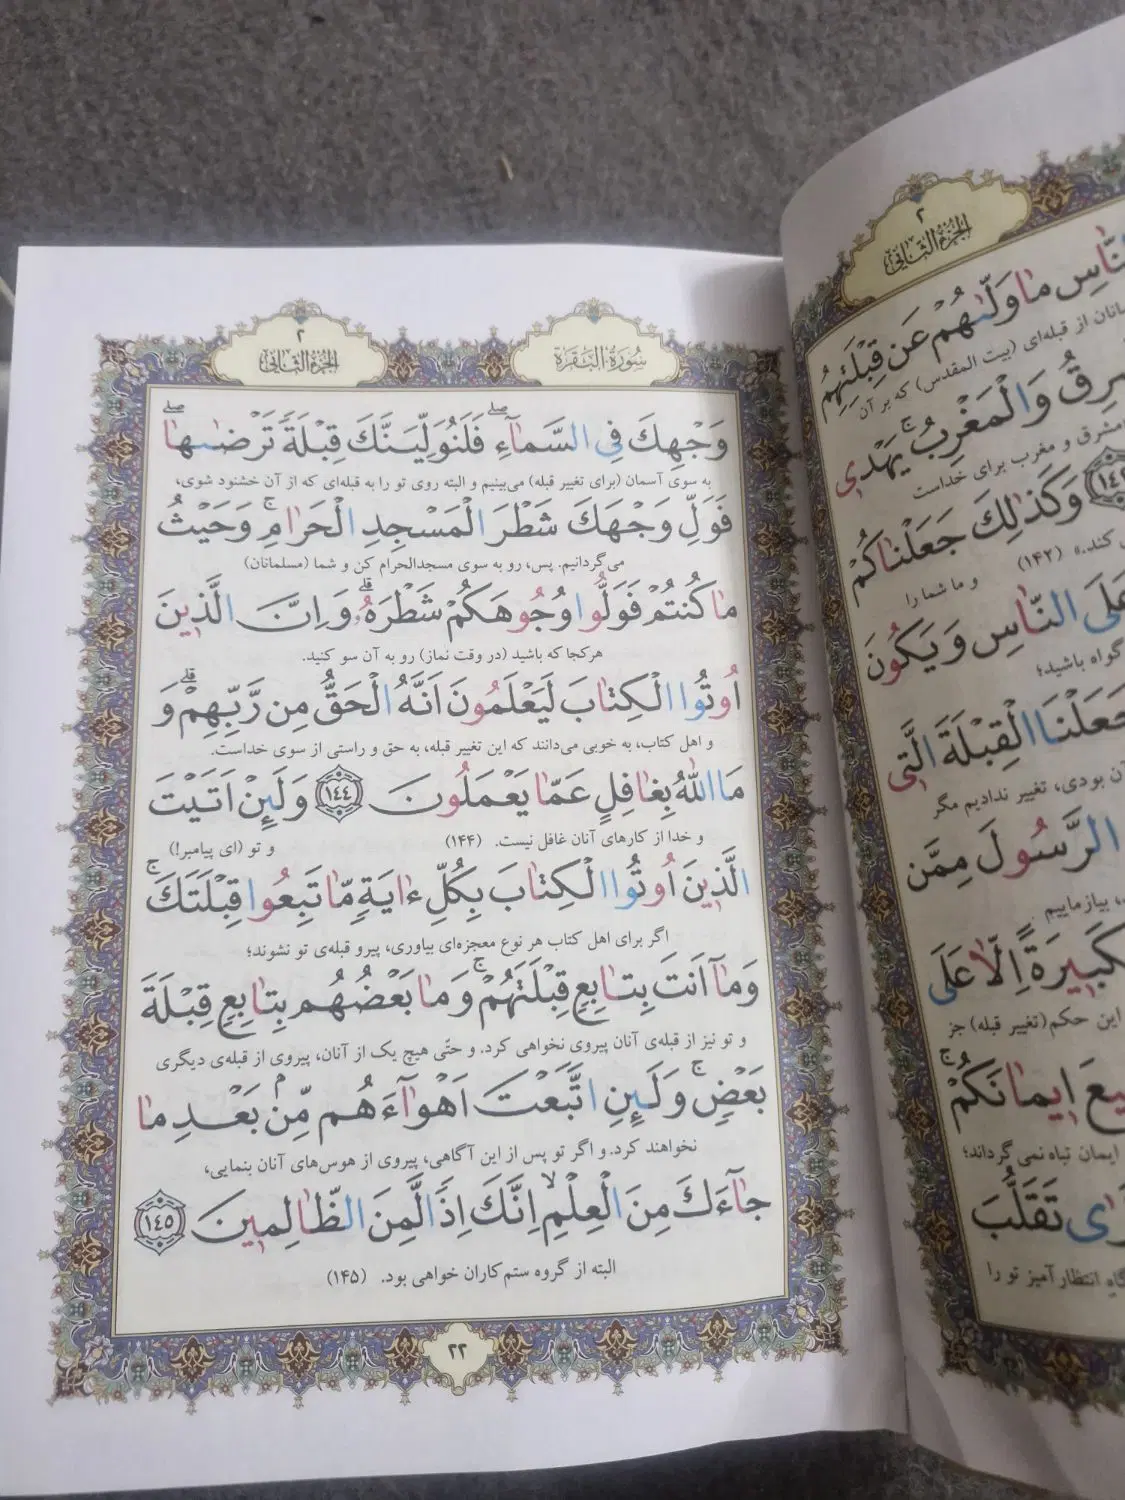 ۲
الجزء الثانی
نّاسِ مَا وَلّٰىهُمْ عَنْ قِبْلَتِهِمُ
مانان از قبله‌ای (بیت المقدس) که بر آن
وَالْمَغْرِبُ ۚ یَهْدی
مشرق و مغرب برای خداست
وَکَذٰلِکَ جَعَلْناکُمْ
کند.» (۱۴۲) و ما شما را
عَلَى النّاسِ وَیَکُونَ
گواه باشید؛
جَعَلْنَا الْقِبْلَةَ الَّتی
آن بودی، تغییر ندادیم مگر
الرَّسُولَ مِمَّن
بیازماییم
لَکَبیرَةً اِلّا عَلَى
این حکم (تغییر قبله) جز
ایمانَکُمْ ۚ
ایمان تباه نمی‌گرداند؛
تَقَلُّبَ
انتظار آمیز تو را
سُورَةُ الْبَقَرَة
۲
الجزء الثانی
وَجْهِکَ فِی السَّمآءِ ۖ فَلَنُوَلِّیَنَّکَ قِبْلَةً تَرْضٰىها ۖ
به سوی آسمان (برای تغییر قبله) می‌بینیم و البته روی تو را به قبله‌ای که از آن خشنود شوی،
فَوَلِّ وَجْهَکَ شَطْرَ الْمَسْجِدِ الْحَرامِ ۚ وَحَیْثُ
می‌گردانیم. پس، رو به سوی مسجدالحرام کن و شما (مسلمانان)
ما کُنتُمْ فَوَلُّوا وُجُوهَکُمْ شَطْرَهُ ۗ وَاِنَّ الَّذینَ
هرکجا که باشید (در وقت نماز) رو به آن سو کنید.
اُوتُوا الْکِتابَ لَیَعْلَمُونَ اَنَّهُ الْحَقُّ مِن رَّبِّهِمْ ۗ وَ
و اهل کتاب، به خوبی می‌دانند که این تغییر قبله، به حق و راستی از سوی خداست.
مَا اللّٰهُ بِغافِلٍ عَمّا یَعْمَلُونَ ﴿١٤٤﴾ وَلَئِنْ اَتَیْتَ
و خدا از کارهای آنان غافل نیست. (۱۴۴) و تو (ای پیامبر!)
الَّذینَ اُوتُوا الْکِتابَ بِکُلِّ ءایَةٍ مّا تَبِعُوا قِبْلَتَکَ ۚ
اگر برای اهل کتاب هر نوع معجزه‌ای بیاوری، پیرو قبله‌ی تو نشوند؛
وَمآ اَنتَ بِتابِعٍ قِبْلَتَهُمْ ۚ وَما بَعْضُهُم بِتابِعٍ قِبْلَةَ
و تو نیز از قبله‌ی آنان پیروی نخواهی کرد. و حتّی هیچ یک از آنان، پیروی از قبله‌ی دیگری
بَعْضٍ ۚ وَلَئِنِ اتَّبَعْتَ اَهْوآءَهُم مِّنۢ بَعْدِ ما
نخواهند کرد. و اگر تو پس از این آگاهی، پیروی از هوس‌های آنان بنمایی،
جآءَکَ مِنَ الْعِلْمِ ۙ اِنَّکَ اِذًا لَّمِنَ الظّالِمینَ ﴿١٤٥﴾
البته از گروه ستم‌کاران خواهی بود. (۱۴۵)
۲۲